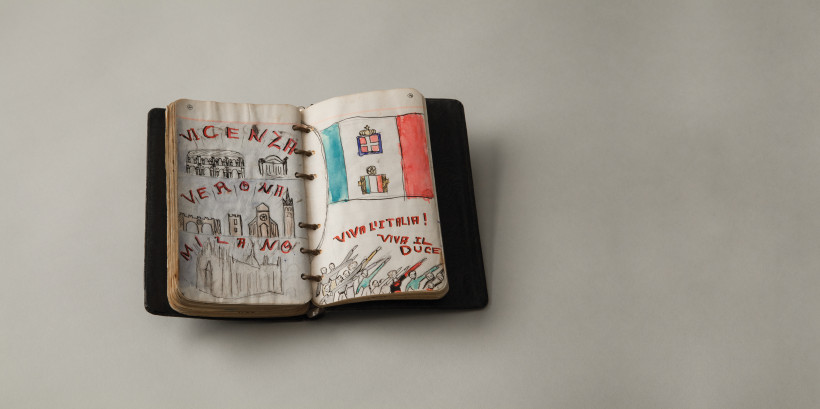 VICENZA
VERONA
MILANO
VIVA L'ITALIA!
VIVA IL
DUCE